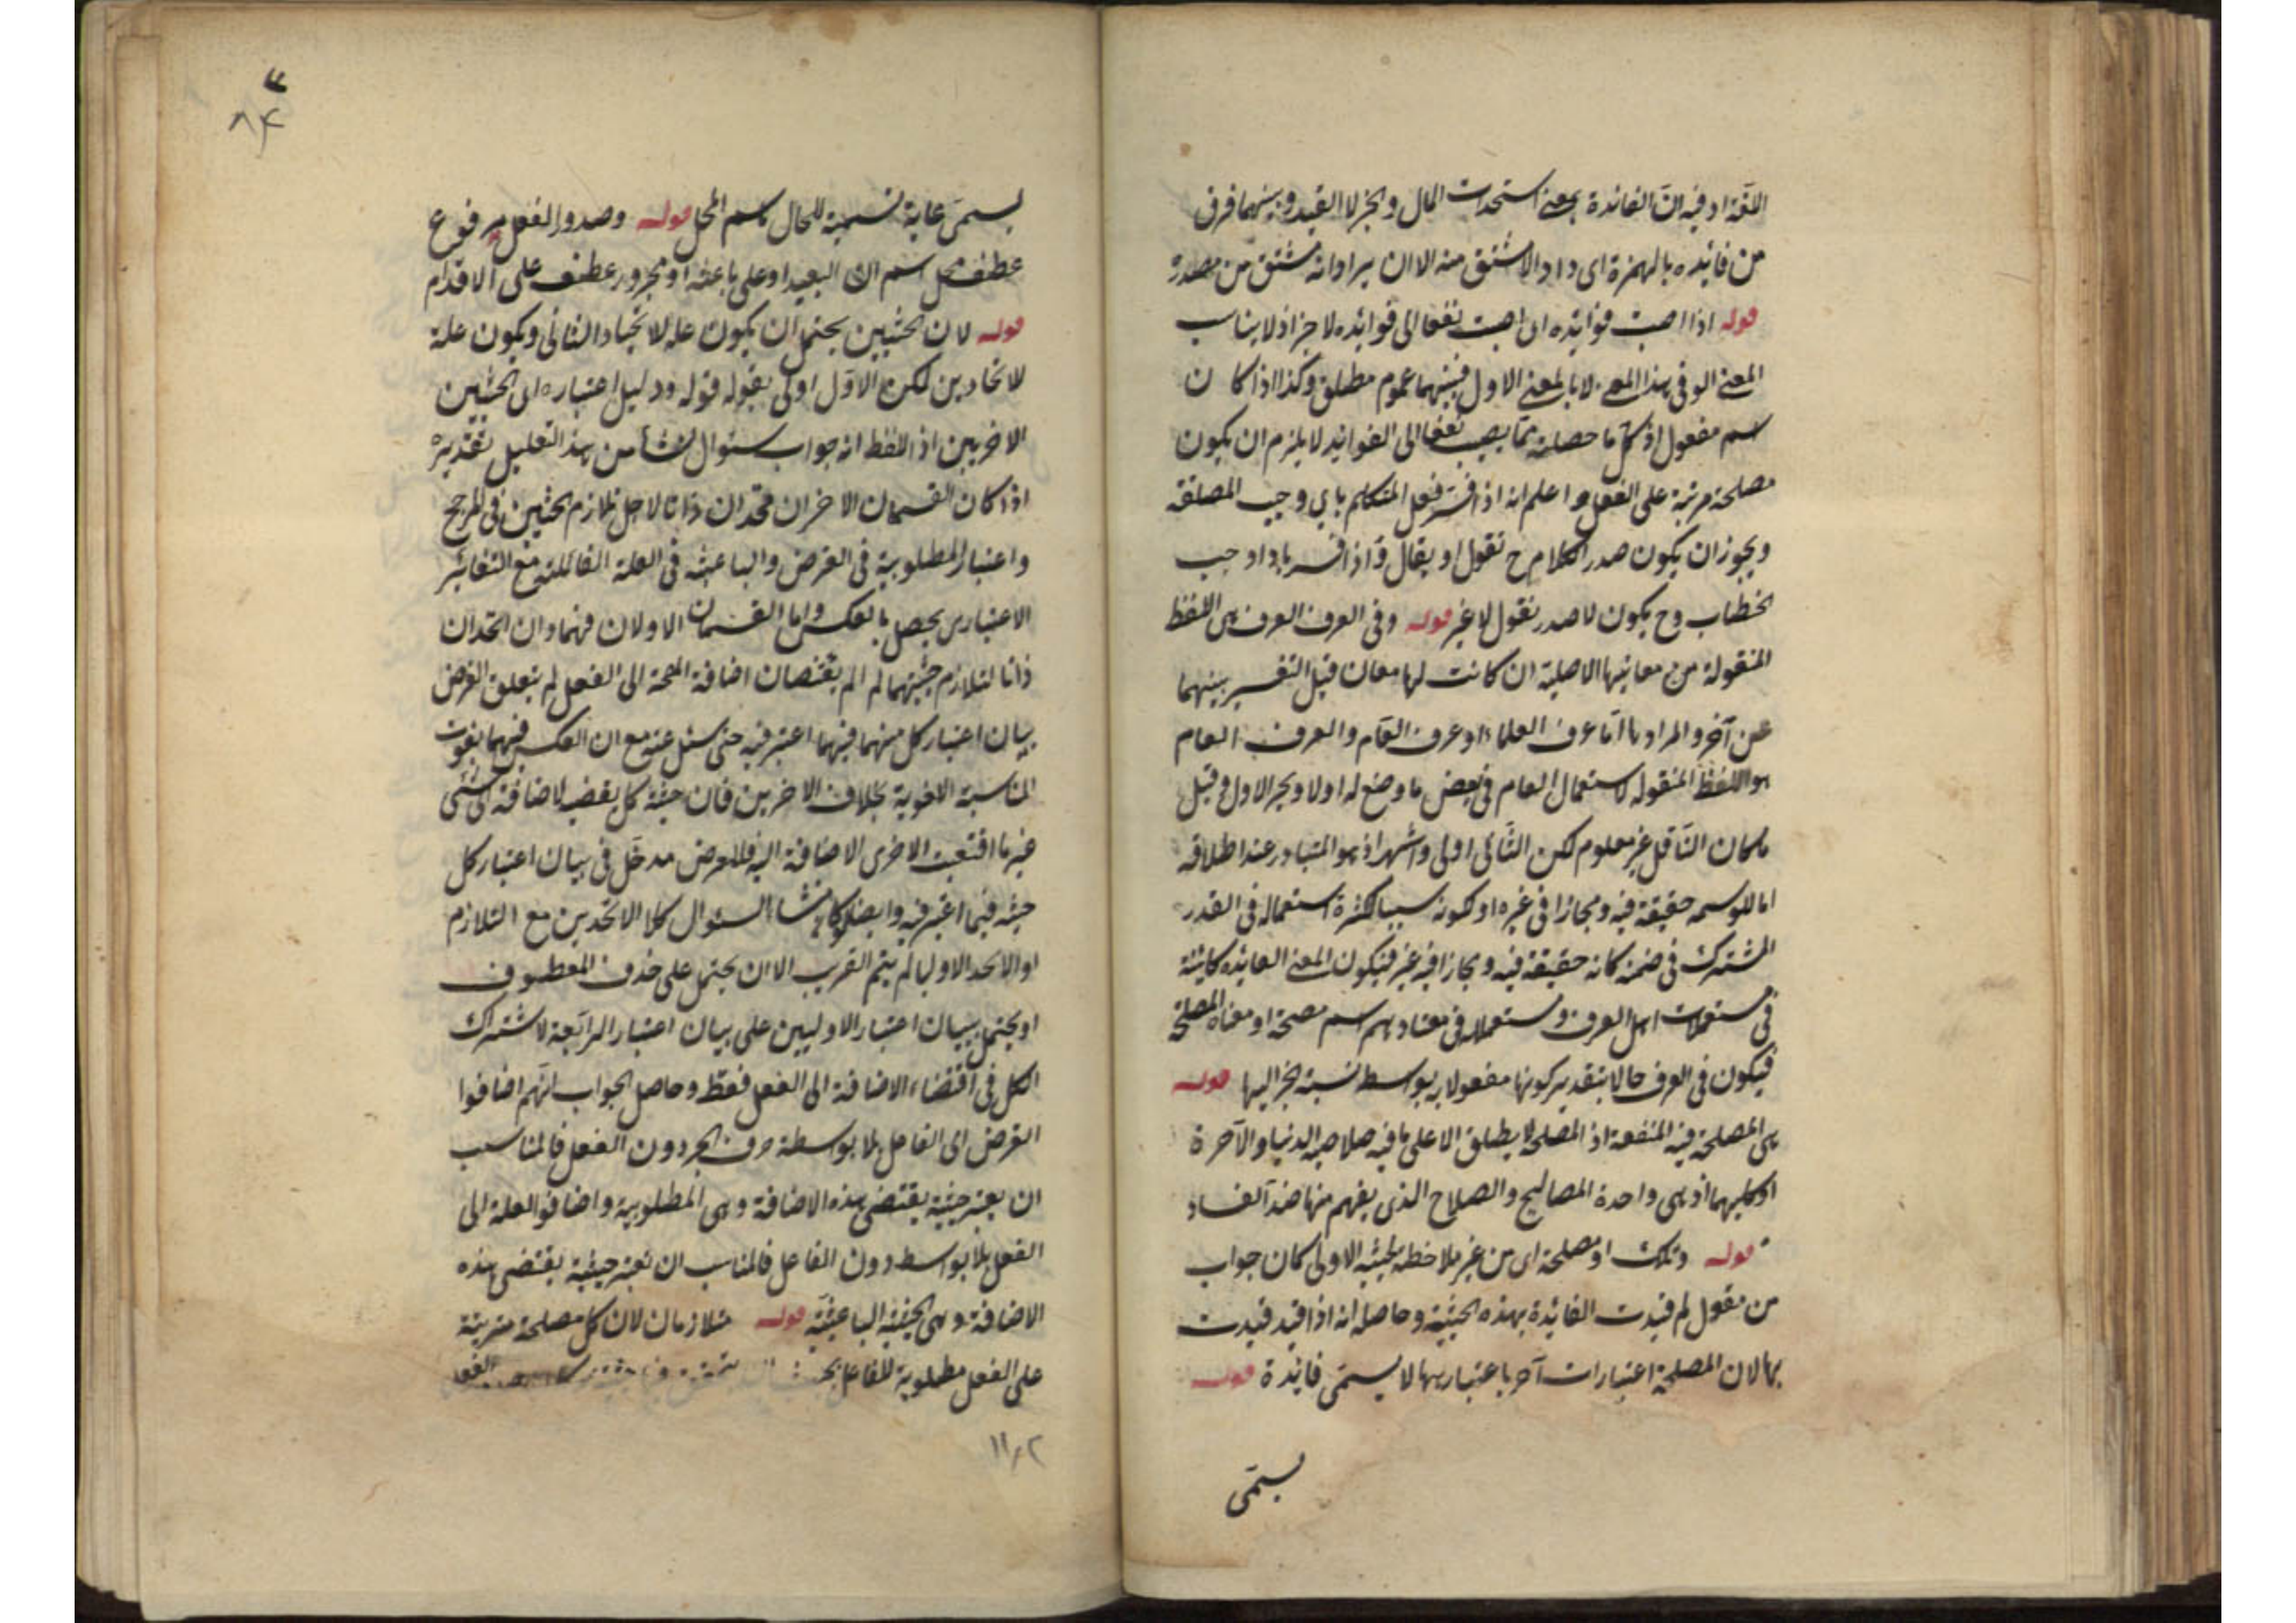 اللغة او فيه ان الفائدة بمعنى استحدث المال والخير لا القيد و بينهما فرق
من فائده بالهمزة اى داد الاشتق منه الا ان يراد انه مشتق من مصدره
قوله اذا اصبت فوائده اى اصبت نفعا الى فوائده لا جزاذ لا يناسب
المعنى الو فى بهذا المعنى لا بالمعنى الاول فبينهما عموم مطلق وكذا اذا كان
اسم مفعول اذ كل ما حصلته مما يصب نفعا الى الفوائد لا يلزم ان يكون
مصلحة مرتبة على الفعل واعلم انه اذا فسر فعل المتكلم باى وجب المصلقة
ويجوز ان يكون صدر الكلام ح نقول او يقال و اذا فسر باذا وجب
الخطاب وح يكون لا صدر نقول لا غير قوله وفى العرف العرف هى اللفظ
المنقولة من معانيها الاصلية ان كانت لها معان قبل التفسير بينهما
عن آخر والمراد بها اما عرف العلماء او عرف العام والعرف العام
هو اللفظ المنقوله لاستعمال العام فى بعض ما وضع له اولا ويجر الاول و قيل
ما كان الناقل غير معلوم لكن الثانى اولى واشهر اذ هو المتبادر عند اطلاقه
اما للوسمه حقيقة فيه ومجازا فى غيره او لكونه سببا لكثرة استعماله فى القدر
المشترك فى ضمنه كانه حقيقة فيه ومجاز فيه غير فيكون المعنى الفائده كائنة
فى مستعملات اهل العرف ومستعمله فى معتادهم اسم مصحة او معناه المصلحة
فيكون فى العرف حالا بتقدير كونها مفعولا به بواسط نسبة الجر اليها قوله
هى المصلحة فيه المنفعة اذ المصلحة لا يطلق الا على ما فيه صلاحيه الدنيا والآخرة
او كليهما اذ هى واحدة المصاليح والصلاح الذى يفهم منها ضد الفساد
قوله وتلك او مصلحة اى من غير ملاحظه الحيثيه الاولى كان جواب
من نقول لم قيدت الفائدة بهذه الحيثية وحاصله انه اذا قيد قيدت
بها لان المصلحة اعتبارات آخر باعتبار بها لا يسمى فائدة قوله
يسمى
٨٤
يسمى غاية تسمية للحال باسم المحل قوله وصدور الفعل مرفوع
عطف محل اسم ان البعيد او على باعثه او مجرور عطف على الاقدام
قوله لان الحيثيين يحتمل ان يكون عله لاتحاد الثانى ويكون علة
للاتحادين لكن الاول اولى بقوله قوله ودليل اعتباره اى الحيثيين
الاخريين اذ اللفظ انه جواب سئوال نشأ من هذا التعليل تقديره
اذا كان القسمان الاخران متحدان ذاتا لاجل تلازم الحيثين فى المرجح
واعتبار المطلوبية فى الغرض والباعثيه فى العلة القائلته مع التغائر
الاعتبارى يحصل بالعكس واما القسمان الاولان فهما وان اتحدان
ذاتا لتلازم حيثيتهما لم الم يقتضان اضافة المحة الى الفعل لم يتعلق الغرض
ببيان اعتبار كل منهما فيهما اعتبر فيه حتى سئل عنه مع ان العكس فيهما يفوت
المناسبة الاخوية بخلاف الاخريين فان حيثية كل يقضى لاضافته الى شئى
غير ما اقتضت الاخرى الاضافة اليه فللغرض مدخل فى بيان اعتبار كل
حيثيه فيما اعتبر فيه وايضا لو كان منشاء السئوال كلا الاتحدين مع التلازم
او الاتحد الاوليا لم يتم القرب الا ان يحتمل على حذف المعطوف
او يحتمل ببيان اعتبار الاوليين على بيان اعتبار الرابعة لاشتراك
الكل فى اقتضاء الاضافة الى الفعل فقط وحاصل الجواب انهم اضافوا
الغرض الى الفاعل بلا بوسطة حرف الجر دون الفعل فالمناسب
ان يعتبر حيثية يقتضى هذه الاضافة وهى المطلوبية واضافوا العلة الى
الفعل بلا بواسط دون الفاعل فالمناسب ان تعتبر حيثية يقتضى هذه
الاضافة وهى الحيثية الباعثية قوله متلازمان لان كل مصلحة مترتبة
على الفعل مطلوبة للفاعل
١١٨٢